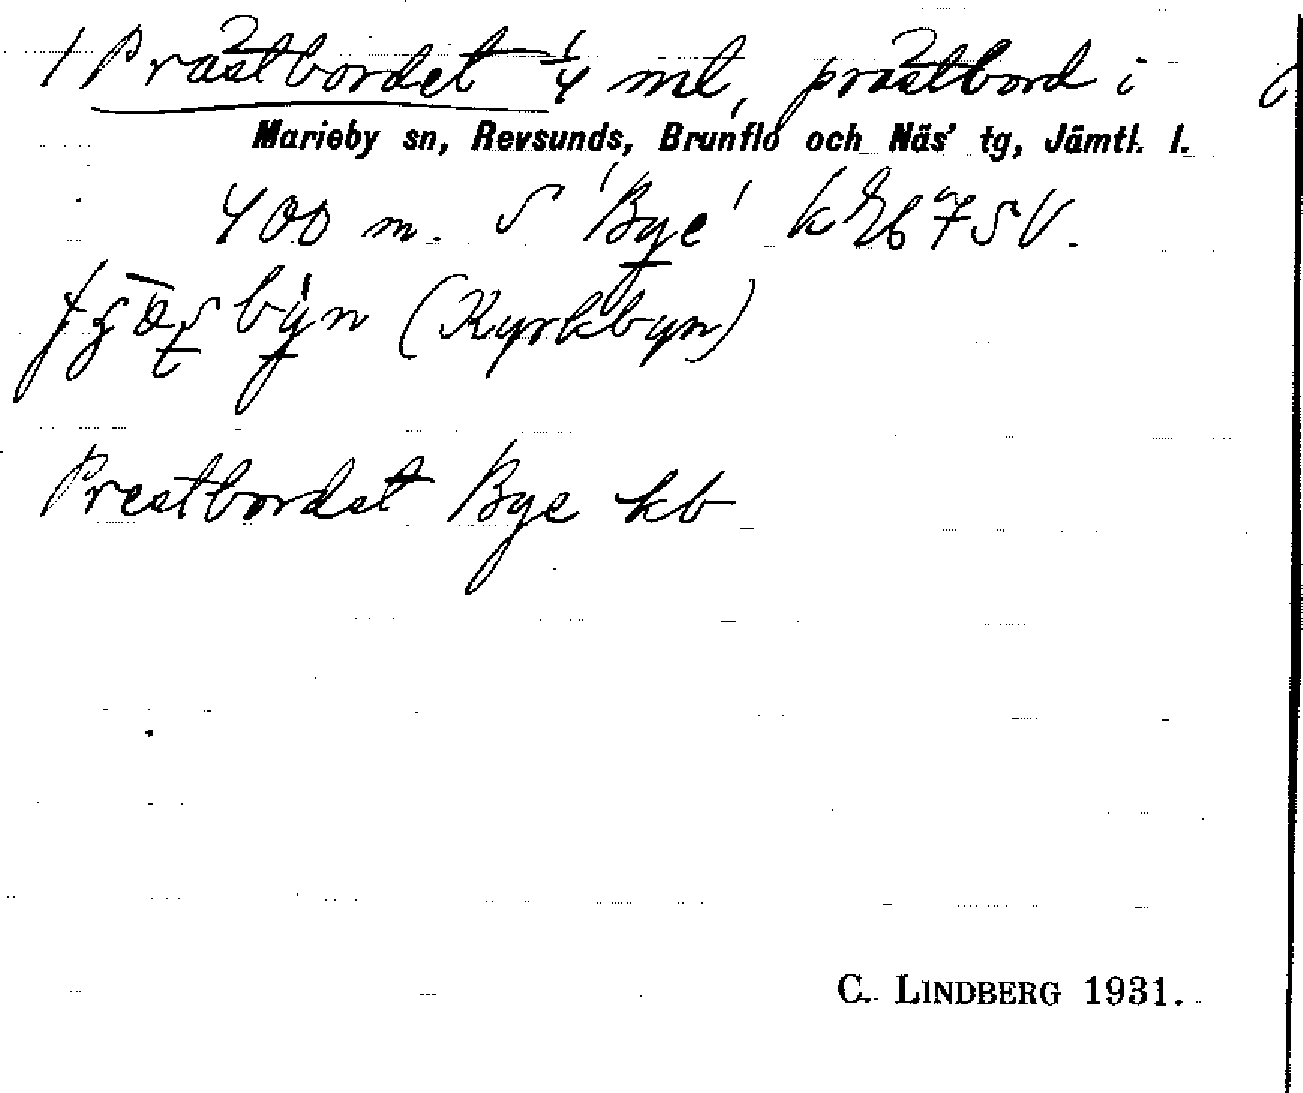 Prästbordet 1/4 mt, prästbord i
Marieby sn, Revsunds, Brunflo och Näs' tg, Jämtl. l.
400 m. S 'Bye' k 75V.
(Kyrkbyn)
Prestbordet Bye kb
C. LINDBERG 1931.